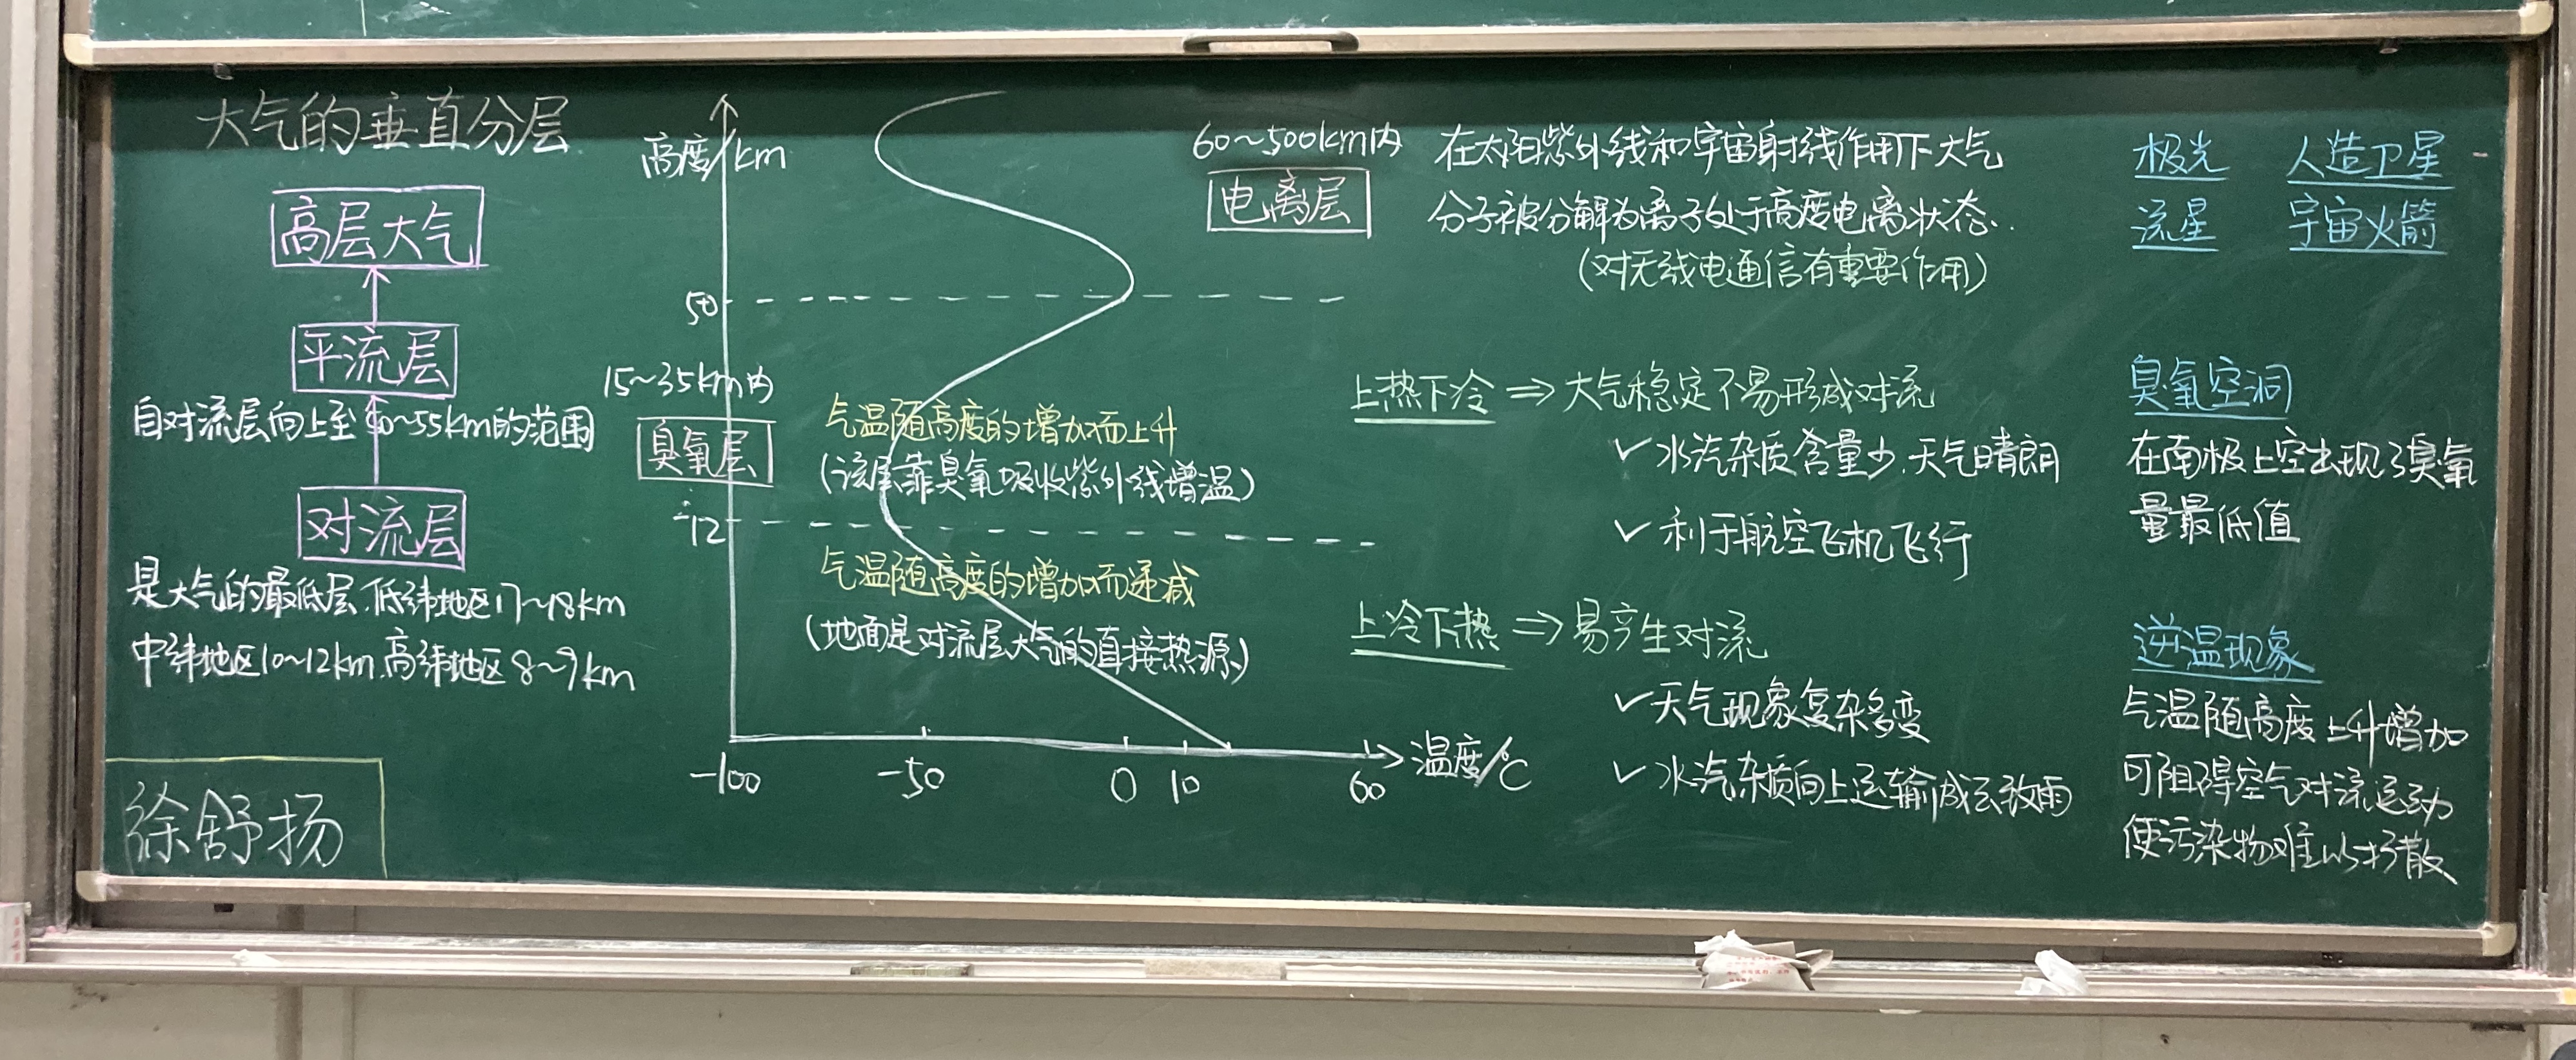 大气的垂直分层
高层大气
平流层
自对流层向上至50~55km的范围
对流层
是大气的最低层.低纬地区17~18km
中纬地区10~12km.高纬地区8~9km
徐舒扬
高度/km
50
15~35km内
臭氧层
12
气温随高度的增加而上升
(该层靠臭氧吸收紫外线增温)
气温随高度的增加而递减
(地面是对流层大气的直接热源)
-100 -50 0 10 60 温度/℃
60~500km内
电离层
在太阳紫外线和宇宙射线作用下大气
分子被分解为离子处于高度电离状态.
(对无线电通信有重要作用)
上热下冷⇒大气稳定不易形成对流
✓水汽杂质含量少.天气晴朗
✓利于航空飞机飞行
上冷下热⇒易产生对流
✓天气现象复杂多变
✓水汽杂质向上运输成云致雨
极光 人造卫星
流星 宇宙火箭
臭氧空洞
在南极上空出现了臭氧
量最低值
逆温现象
气温随高度上升增加
可阻碍空气对流运动
使污染物难以扩散